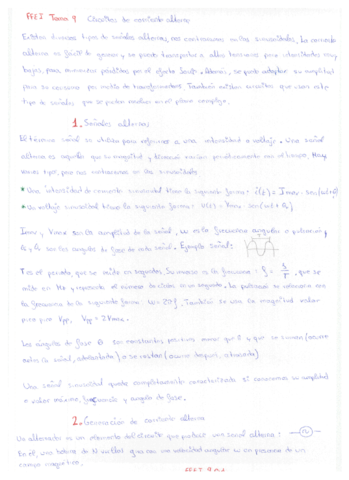 FFEI Tema 9 Circuitos de corriente alterna
Existen diversos tipos de señales alternas, nos centraremos en las sinusoidales. La corriente
alterna es fácil de generar y se puede transportar a altas tensiones para intensidades muy
bajas, para minimizar pérdidas por el efecto Joule. Además, se puede adaptar su amplitud
para su consumo por medio de transformadores. También existen circuitos que usan este
tipo de señales que se pueden resolver en el plano complejo.
1. Señales alternas:
El término señal se utiliza para referirnos a una intensidad o voltaje. Una señal
alterna es aquella que su magnitud y dirección varían periódicamente con el tiempo. Hay
varios tipos, pero nos centraremos en las sinusoidales
* Una intensidad de corriente sinusoidal tiene la siguiente forma: i(t) = Imax · sen(ωt +
* Un voltaje sinusoidal tiene la siguiente forma: v(t) = Vmax · sen(ωt +
Imax y Vmax son la amplitud de la señal, ω es la frecuencia angular o pulsación y
son los ángulos de fase de cada señal. Ejemplo señal:
T es el periodo, que se mide en segundos. Su inversa es la frecuencia: f = 1/T, que se
mide en Hz y representa el número de ciclos en un segundo. La pulsación se relaciona con
la frecuencia de la siguiente forma: ω = 2πf. También se usa la magnitud valor
pico pico Vpp, Vpp = 2Vmax.
Los ángulos de fase θ son constantes positivas mayor que 0 y que se suman (ocurre
antes la señal, adelantada) o se restan (ocurre después, atrasada)
Una señal sinusoidal queda completamente caracterizada si conocemos su amplitud
o valor máximo, frecuencia y ángulo de fase.
2. Generación de corriente alterna
Un alternador es un elemento del circuito que produce una señal alterna:
En él, una bobina de N vueltas gira con una velocidad angular ω en presencia de un
campo magnético.